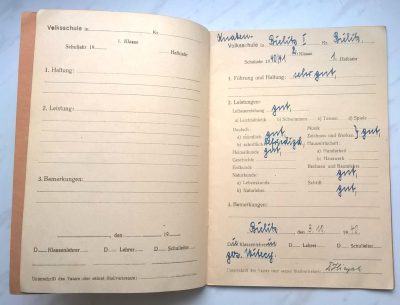 Volksschule in Kr.
1. Klasse
Schuljahr 19 Halbjahr
1. Haltung:
2. Leistung:
3. Bemerkungen:
, den 19
D Klassenlehrer D Lehrer D Schulleiter
Unterschrift des Vaters oder seines Stellvertreters:
Knaben
Volksschule in Bielitz I Kr. Bielitz
2. Klasse
Schuljahr 1940/41 1. Halbjahr
1. Führung und Haltung: sehr gut,
2. Leistungen:
Leibeserziehung: gut,
a) Leichtathletik b) Schwimmen c) Turnen d) Spiele
Deutsch: Musik
a) mündlich gut, Zeichnen und Werken } gut,
b) schriftlich Hauswirtschaft:
Heimatkunde gut, a) Handarbeit
Geschichte b) Hauswerk
Erdkunde Rechnen und Raumlehre
Naturkunde: gut,
a) Lebenskunde Schrift: gut,
b) Naturlehre
3. Bemerkungen:
Bielitz, den 3. 10. 1940
D Klassenlehrer D Lehrer D Schulleiter
Unterschrift des Vaters oder seines Stellvertreters: